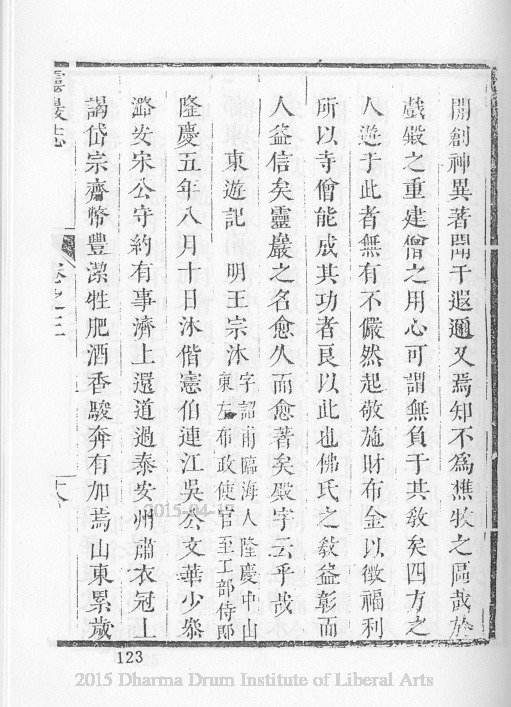 開創神異著聞于遐邇又焉知不爲樵牧之區哉於
戲殿之重建僧之用心可謂無負于其敎矣四方之
人遊于此者無有不儼然起敬施財布金以徼福利
所以寺僧能成其功者良以此也佛氏之敎益彰而
人益信矣靈巖之名愈久而愈著矣殿宇云乎哉
東遊記 明王宗沐
字新甫臨海人隆慶中山
東左布政使官至工部侍郎
隆慶五年八月十日沐偕憲伯連江吳公文華少叅
潞安宋公守約有事濟上還道過泰安州肅衣冠上
謁岱宗齋幣豐潔牲肥酒香駿奔有加焉山東累歲
靈巖志
卷之三
十八
123
2015-04-17
2015 Dharma Drum Institute of Liberal Arts